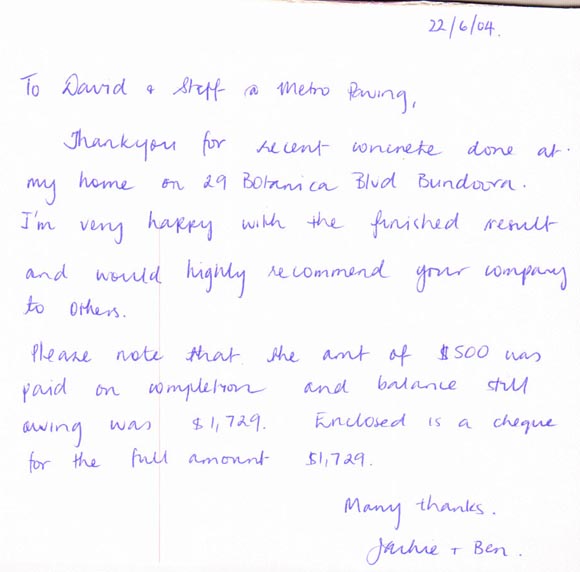 22/6/04.
To David + Staff @ Metro Paving,
Thankyou for recent concrete done at
my home on 29 Botanica Blvd Bundoora.
I'm very happy with the finished result
and would highly recommend your company
to others.
Please note that the amt of $500 was
paid on completion and balance still
owing was $1,729. Enclosed is a cheque
for the full amount $1,729.
Many thanks.
Jackie + Ben.